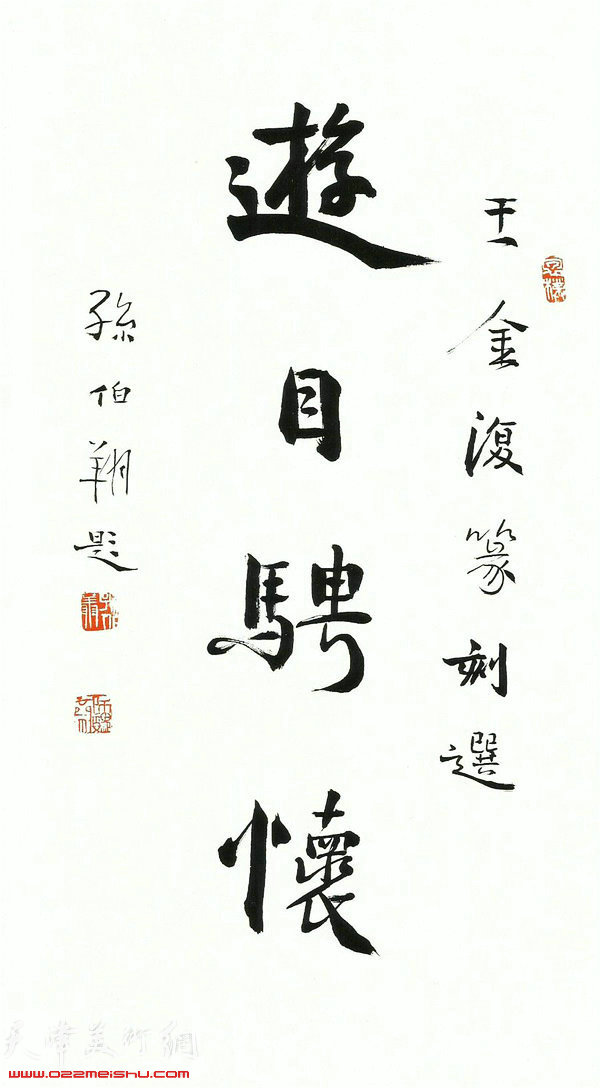 王金復篆刻選
遊目騁懷
孫伯翔題
天津美術網
www.022meishu.com